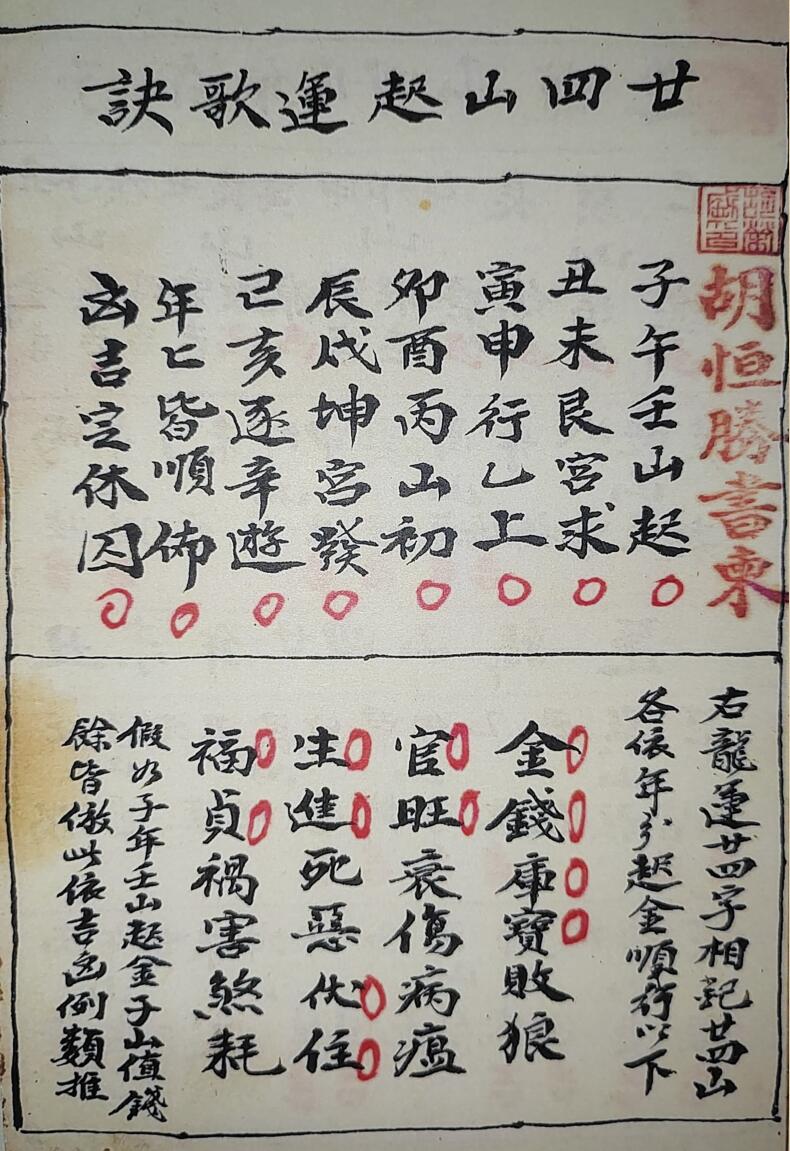 廿四山起運歌訣
胡恒勝書柬
子午壬山起
丑未艮宮求
寅申行乙上
卯酉丙山初
辰戌坤宮發
己亥逐辛遊
年匕皆順佈
凶吉定休囚
右龍運廿四字相配廿四山
各依年分起金順行以下
金錢庫寶敗狼
官旺衰傷病瘟
生進死惡伏住
福貞禍害煞耗
假如子年壬山起金子山值錢
餘皆倣此依吉凶例類推